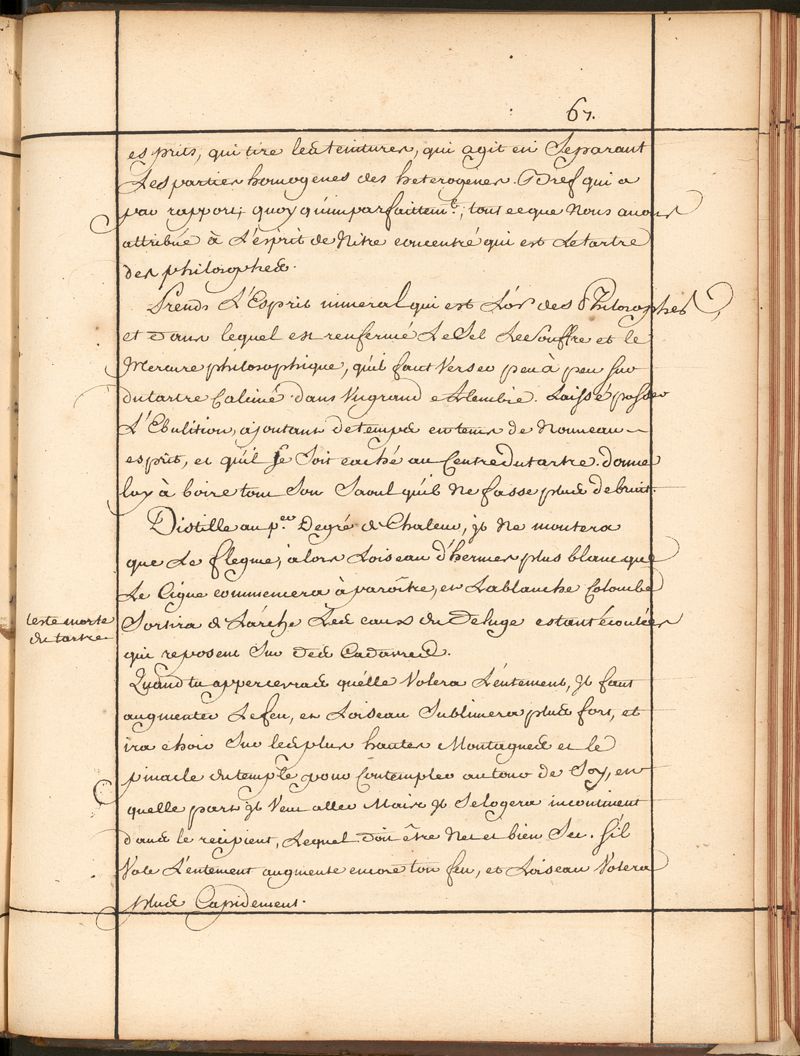 67.
esprits, qui tire les teintures, qui agit en Separant
Les parties homogenes des heterogenes. Bref qui a
par rapport, quoy qu'imparfaittemt., tout ce que Nous avons
attribué à L'esprit de Nitre concentré qui est Le tartre
des philosophes.
Prends L'Esprit mineral qui est L'or des Philosophes
et dans lequel est renfermé Le Sel Le Souffre et le
Mercure philosophique, qu'il faut Verser peu à peu sur
du tartre Calciné dans Un grand Alembic. Laissé passer
L'Ebulition, ajoutant de temps en tems de Nouveau
esprit, et qu'il se Soit caché au Centre du tartre. donne
luy à boire tout Son Saoul qu'il Ne fasse plus de bruit.
Distille au per. Degré de Chaleur, il Ne montera
que Le flegme, alors L'oiseau d'hermes plus blanc que
Le Cigne commencera à paroître, et La blanche Colombe
Sortira de L'arche Les eaux du Deluge estant écoulées
teste morte
du tartre
qui reposent Sur Des Cadavres.
Quand tu appercevras qu'élle Volera L'entement, il faut
augmenter Le feu, et L'oiseau Sublimera plus fort, et
ira choir Sur les plus hautes Montagnes et le
pinacle du temple pour Contempler autour de Soy, en
quelle part il Veut aller Mais il Se logera incontinent
dans le recipient, Lequel doit être Net et bien Sec. S'il
Vole L'entement augmente encore ton feu, et L'oiseau Volera
plus Rapidement.